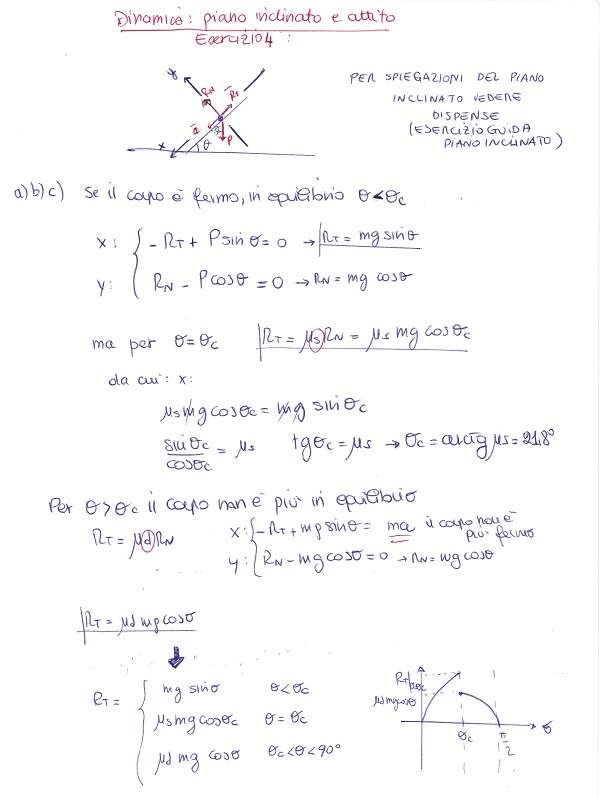 Dinamica: piano inclinato e attrito
Esercizio 4:
y
RN
RT
a
x
θ
P
PER SPIEGAZIONI DEL PIANO
INCLINATO VEDERE
DISPENSE
(ESERCIZIO GUIDA
PIANO INCLINATO)
a) b) c) Se il corpo è fermo, in equilibrio θ<θc
x: { -RT + P sin θ = 0 → RT = mg sin θ
y: { RN - P cos θ = 0 → RN = mg cos θ
ma per θ=θc RT = μs RN = μs mg cos θc
da cui: x:
μs mg cos θc = mg sin θc
sin θc / cos θc = μs tg θc = μs → θc = arctg μs = 21,8°
Per θ > θc il corpo non è più in equilibrio
RT = μd RN x: { -RT + mg sin θ = ma il corpo non è più fermo
y: { RN - mg cos θ = 0 → RN = mg cos θ
RT = μd mg cos θ
RT = { mg sin θ θ<θc
μs mg cos θc θ = θc
μd mg cos θ θc<θ<90°
RT
μd mg cos θ
θc
π/2
θ